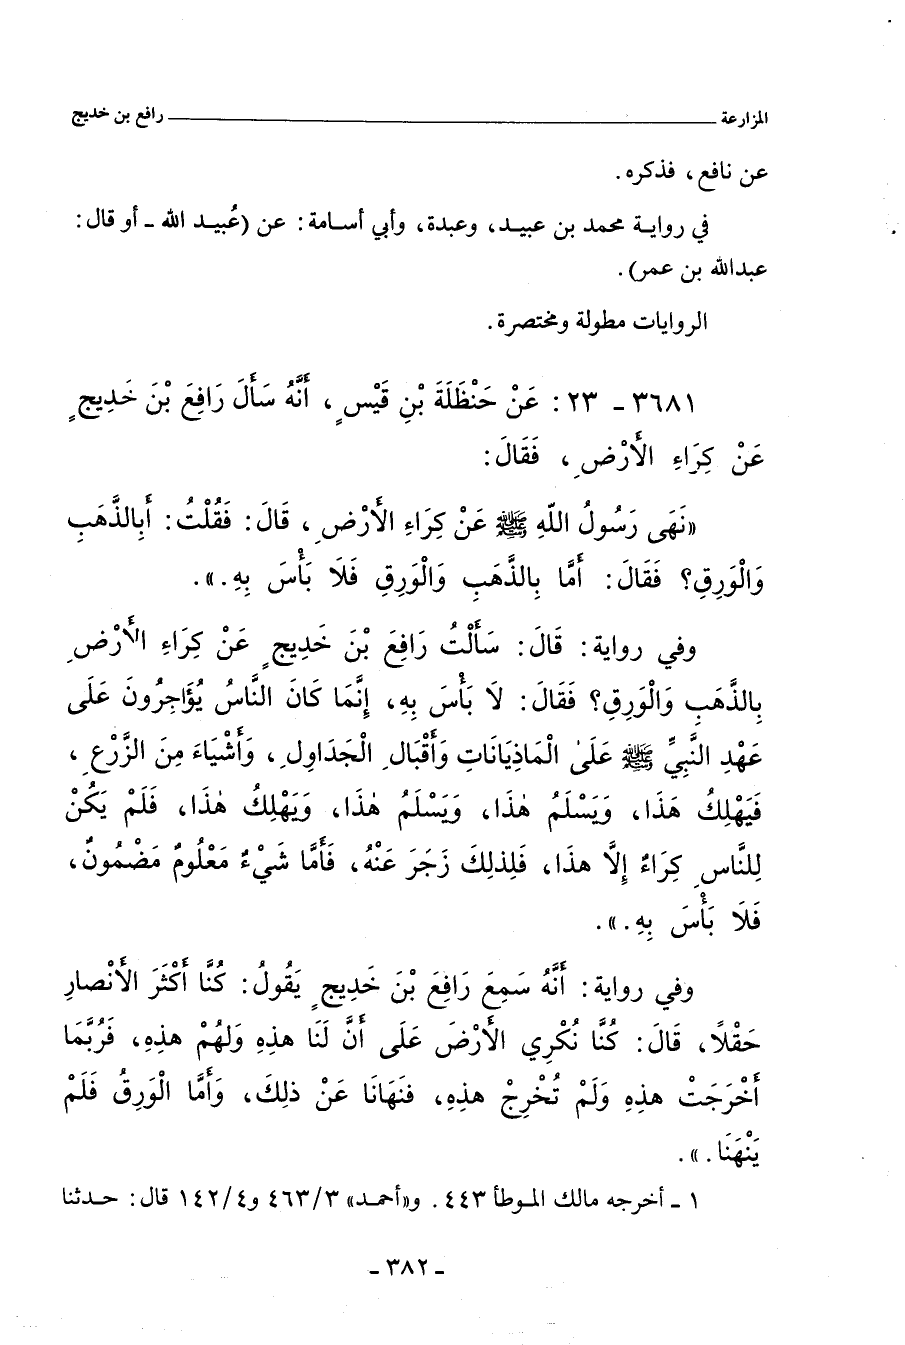 المزارعة ــــــــــ رافع بن خديج
عن نافع ، فذكره .
في روايـة محمد بن عبيـد، وعبدة، وأبي أسـامة : عن (عُبيـد الله ـ أو قال :
عبدالله بن عمر) .
الروايات مطولة ومختصرة .
٣٦٨١ ـ ٢٣ : عَنْ حَنْظَلَةَ بْنِ قَيْسٍ ، أَنَّهُ سَأَلَ رَافِعَ بْنَ خَدِيجٍ
عَنْ كِرَاءِ الأَرْضِ ، فَقَالَ :
«نَهَى رَسُولُ اللّهِ ﷺ عَنْ كِرَاءِ الأَرْضِ ، قَالَ : فَقُلْتُ : أَبِالذَّهَبِ
وَالْوَرِقِ؟ فَقَالَ : أَمَّا بِالذَّهَبِ وَالْوَرِقِ فَلَا بَأْسَ بِهِ .» .
وفي رواية : قَالَ : سَأَلْتُ رَافِعَ بْنَ خَدِيجٍ عَنْ كِرَاءِ الأَرْضِ
بِالذَّهَبِ وَالْوَرِقِ؟ فَقَالَ : لَا بَأْسَ بِهِ ، إِنَّمَا كَانَ النَّاسُ يُؤَاجِرُونَ عَلَى
عَهْدِ النَّبِيِّ ﷺ عَلَىٰ الْمَاذِيَانَاتِ وَأَقْبَالِ الْجَدَاوِلِ ، وَأَشْيَاءَ مِنَ الزَّرْعِ ،
فَيَهْلِكُ هَذَا ، وَيَسْلَمُ هٰذَا ، وَيَسْلَمُ هٰذَا ، وَيَهْلِكُ هٰذَا ، فَلَمْ يَكُنْ
لِلنَّاسِ كِرَاءٌ إِلَّا هذَا ، فَلِذلِكَ زَجَرَ عَنْهُ ، فَأَمَّا شَيْءٌ مَعْلُومٌ مَضْمُونٌ ،
فَلَا بَأْسَ بِهِ .» .
وفي رواية : أَنَّهُ سَمِعَ رَافِعَ بْنَ خَدِيجٍ يَقُولُ : كُنَّا أَكْثَرَ الأَنْصارِ
حَقْلًا ، قَالَ : كُنَّا نُكْرِي الأَرْضَ عَلَى أَنَّ لَنَا هذِهِ وَلَهُمْ هذِهِ ، فَرُبَّمَا
أَخْرَجَتْ هذِهِ وَلَمْ تُخْرِجْ هذِهِ ، فَنَهَانَا عَنْ ذلِكَ ، وَأَمَّا الْوَرِقُ فَلَمْ
يَنْهَنَا .» .
١ ـ أخرجه مالك الموطأ ٤٤٣ . و«أحمـد» ٤٦٣/٣ و١٤٢/٤ قال : حـدثنا
ـ ٣٨٢ ـ